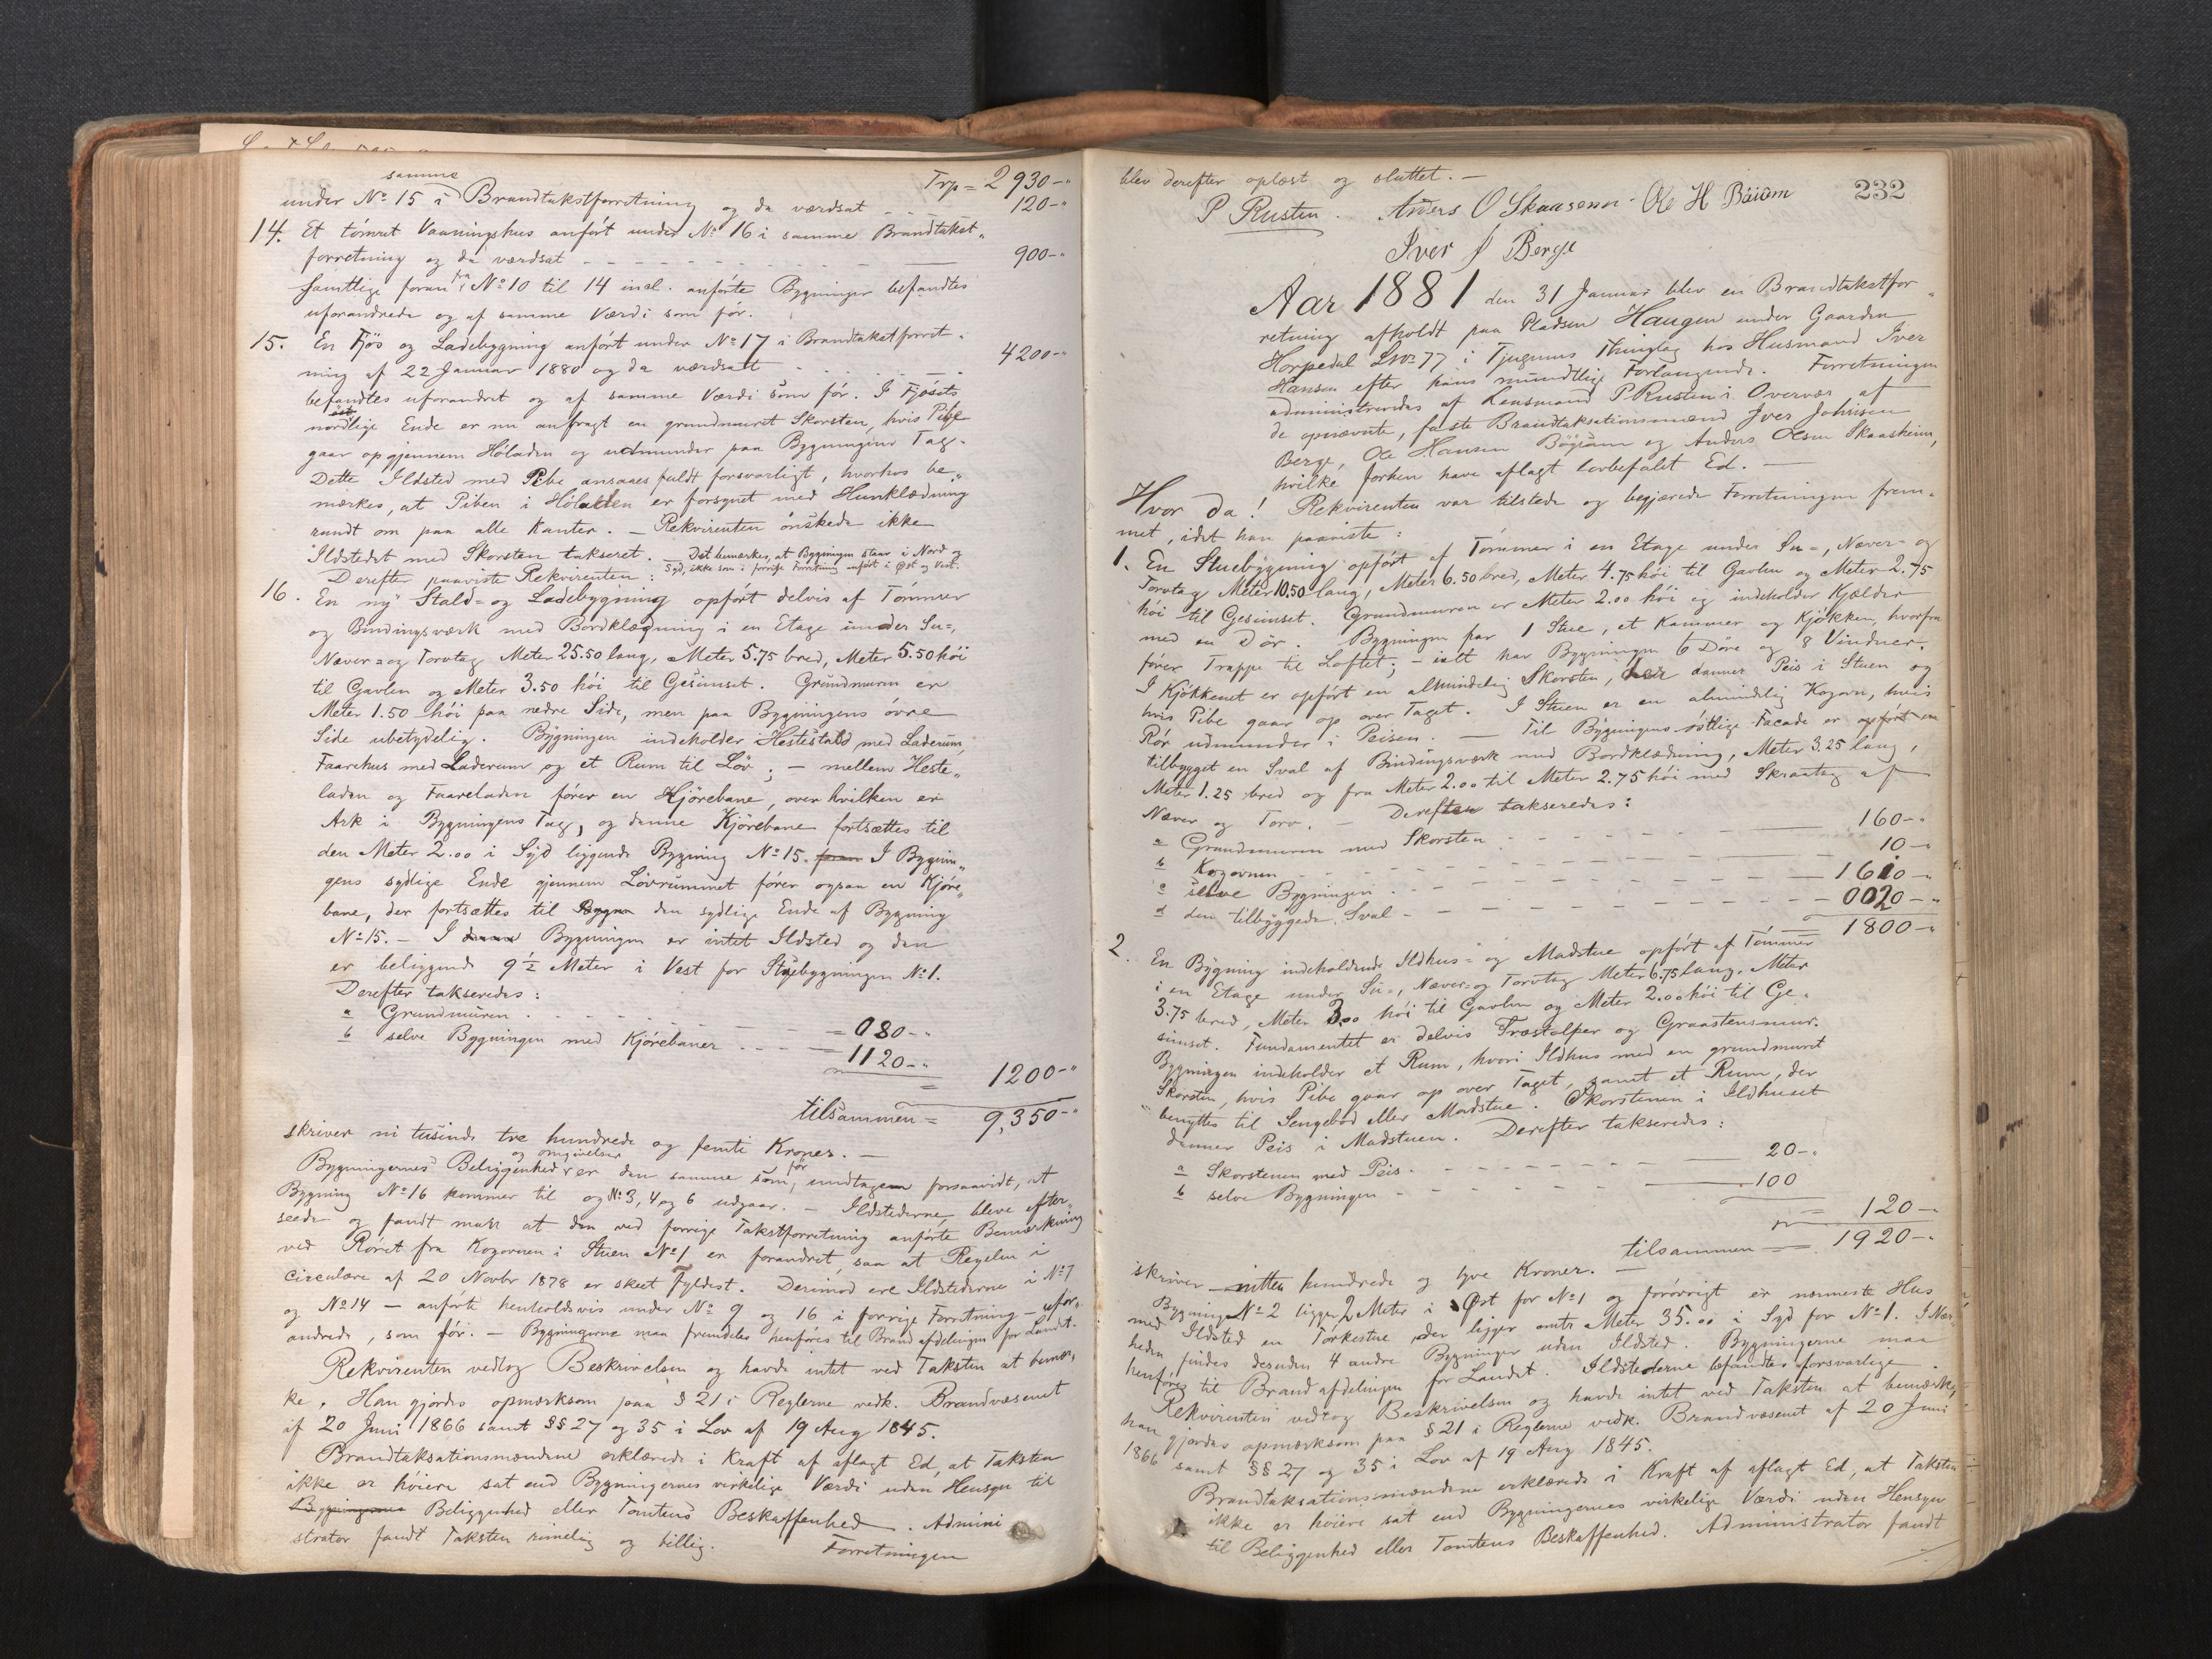 samme Trp = 2930-"
under No 15 i Brandtakstforretning og da værdsat - - - 120-"
14. Et tömret Vaaningshus anfört under No 16 i samme Brandtakst„
forretning og da værdsat - - - 900-"
Samtlige foran fra No 10 til 14 incl. anförte Bygninger befandtes
uforandrede og af samme Værdi som för.
15. En Fjös og Ladebygning anfört under No 17 i Brandtakstforret-
ning af 22 Januar 1880 og da værdsat - - - 4200-"
befandtes uforandret og af samme Værdi som för. I Fjösets
nordlige Ende er nu anbragt en grundmuret Skorsten, hvis Pibe
gaar op gjennem Höladen og udmunder paa Bygningens Tag.
Dette Ildsted med Pibe ansaaes fuldt forsvarligt, hvorhos be„
mærkes, at Piben i Höladen er forsynet med Hunklædning
rundt om paa alle Kanter. — Rekvirenten önskede ikke
Ildstedet med Skorsten takseret. — Det bemærkes, at Bygningen staar i Nord og
Syd, ikke som i forrige Forretning anfört i Öst og Vest.
Derefter paaviste Rekvirenten:
16. En ny Stald- og Ladebygning opfört delvis af Tömmer
og Bindingsværk med Bordklædning i en Etage under Su-,
Næver- og Torvtag Meter 25.50 lang, Meter 5.75 bred, Meter 5.50 höi
til Gavlen og Meter 3.50 höi til Gesimset. Grundmuren er
Meter 1.50 höi paa nedre Side, men paa Bygningens övre
Side ubetydelig. Bygningen indeholder Hestestald med Laderum,
Faarehus med Laderum og et Rum til Löv; — mellem Heste„
laden og Faareladen förer en Kjörebane, over hvilken er
Ark i Bygningens Tag, og denne Kjörebane fortsættes til
den Meter 2.00 i Syd liggende Bygning No 15. foran I Bygnin„
gens sydlige Ende gjennem Lövrummet förer ogsaa en Kjöre„
bane, der fortsættes til Bygn den sydlige Ende af Bygning
No 15. — I denne Bygningen er intet Ildsted og den
er beliggende 9½ Meter i Vest for Stuebygningen No 1.
Derefter takseredes:
a Grundmuren - - - = 080-"
b selve Bygningen med Kjörebaner - - - 1120-"
= 1200-"
tilsammen = 9,350-"
skriver ni tusinde tre hundrede og femti Kroner. —
Bygningernes Beliggenhed og omgivelser er den samme som för, undtagen forsaavidt, at
Bygning No 16 kommer til og No 3, 4 og 6 udgaar. — Ildstederne bleve efter„
seede og fandt man at den ved forrige Takstforretning anförte Bemærkning
ved Röret fra Kogovnen i Stuen No 1 er forandret, saa at Regelen i
Circulære af 20 Novbr 1878 er skeet Fyldest. Derimod ere Ildstederne i No 7
og No 14 — anförte henholdsvis under No 9 og 16 i forrige Forretning — ufor„
andrede, som för. — Bygningerne maa fremdeles henföres til Brandafdelingen for Landet.
Rekvirenten vedtog Beskrivelsen og havde intet ved Taksten at bemær„
ke. Han gjordes opmærksom paa § 21 i Reglerne vedk. Brandvæsenet
af 20 Juni 1866 samt §§ 27 og 35 i Lov af 19 Aug 1845.
Brandtaksationsmændene erklærede i Kraft af aflagt Ed, at Taksten
ikke er höiere sat end Bygningernes virkelige Værdi uden Hensyn til
Bygningernes Beliggenhed eller Tomtens Beskaffenhed. Admini
strator fandt Taksten rimelig og billig. Forretningen
232
blev derefter oplæst og sluttet. —
P Rusten. Anders O Skaasemm. Ole H Böiom
Iver J Berge
Aar 1881 den 31 Januar blev en Brandtakstfor„
retning afholdt paa Pladsen Haugen under Gaarden
Horpedal LNo 77 i Tjugums Thinglag hos Husmand Iver
Hansen efter hans mundtlige Forlangende. Forretningen
administreredes af Lensmand P Rusten i Overvær af
de opnævnte, faste Brandtaksationsmænd Iver Johnsen
Berge, Ole Hansen Böyum og Anders Olsen Skaasheim,
hvilke forhen have aflagt lovbefalet Ed. —
Hvor da! Rekvirenten var tilstede og begjærede Forretningen frem„
met, idet han paaviste:
1. En Stuebygning opfört af Tömmer i en Etage under Su-, Næver- og
Torvtag Meter 10,50 lang, Meter 6.50 bred, Meter 4.75 höi til Gavlen og Meter 2.75
höi til Gesimset. Grundmuren er Meter 2.00 höi og indeholder Kjælder
med en Dör. Bygningen har 1 Stue, et Kammer og Kjökken, hvorfra
förer Trappe til Loftet; — ialt har Bygningen 6 Döre og 8 Vinduer.
I Kjökkenet er opfört en almindelig Skorsten, der danner Peis i Stuen og
hvis Pibe gaar op over Taget. I Stuen er en almindelig Kogovn, hvis
Rör udmunder i Peisen. — Til Bygningens östlige Facade er opfört en
tilbygget en Sval af Bindingsværk med Bordklædning, Meter 3.25 lang,
Meter 1.25 bred og fra Meter 2.00 til Meter 2.75 höi med Skraatag af
Næver og Torv. — Derefter takseredes:
a Grundmuren med Skorsten - - - 160-"
b Kogovnen - - - 10-"
c selve Bygningen - - - 1610-"
d den tilbyggede Sval - - - 0020-"
1800-"
2. En Bygning indeholdende Ildhus- og Madstue opfört af Tömmer
i en Etage under Su-, Næver- og Torvtag Meter 6.75 lang, Meter
3.75 bred, Meter 3.00 höi til Gavlen og Meter 2.00 höi til Ge„
simset. Fundamentet er delvis Træstolper og Graastensmur.
Bygningen indeholder et Rum, hvori Ildhus med en grundmuret
Skorsten, hvis Pibe gaar op over Taget, samt et Rum, der
benyttes til Sengebod eller Madstue. Skorstenen i Ildhuset
danner Peis i Madstuen. Derefter takseredes:
a Skorstenen med Peis - - - 20-"
b selve Bygningen - - - 100
= 120-"
tilsammen = 1920-"
skriver nitten hundrede og tyve Kroner. —
Bygning No 2 ligger 2 Meter i Öst for No 1 og forövrigt er nærmeste Hus
med Ildsted en Törkestue, der ligger omtr Meter 35.00 i Syd for No 1. I Nær„
heden findes desuden 4 andre Bygninger uden Ildsted. Bygningerne maa
henföres til Brandafdelingen for Landet. Ildstederne befandtes forsvarlige.
Rekvirenten vedtog Beskrivelsen og havde intet ved Taksten at bemærke,
han gjordes opmærksom paa § 21 i Reglerne vedk. Brandvæsenet af 20 Juni
1866 samt §§ 27 og 35 i Lov af 19 Aug 1845.
Brandtaksationsmændene erklærede i Kraft af aflagt Ed, at Taksten
ikke er höiere sat end Bygningernes virkelige Værdi uden Hensyn
til Beliggenhed eller Tomtens Beskaffenhed. Administrator fandt